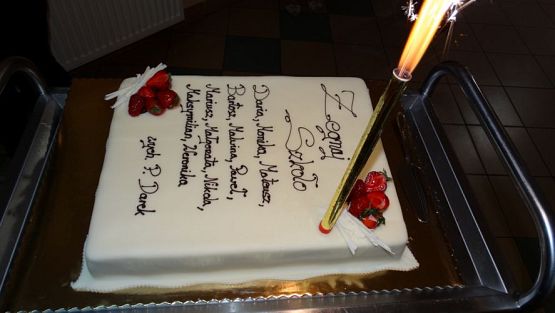 Żegnaj
Szkoło
Daria, Monika, Mateusz,
Bartosz, Martina, Paweł,
Mariusz, Małgorzata, Nikola,
Maksymilian, Weronika
wych. P. Darek